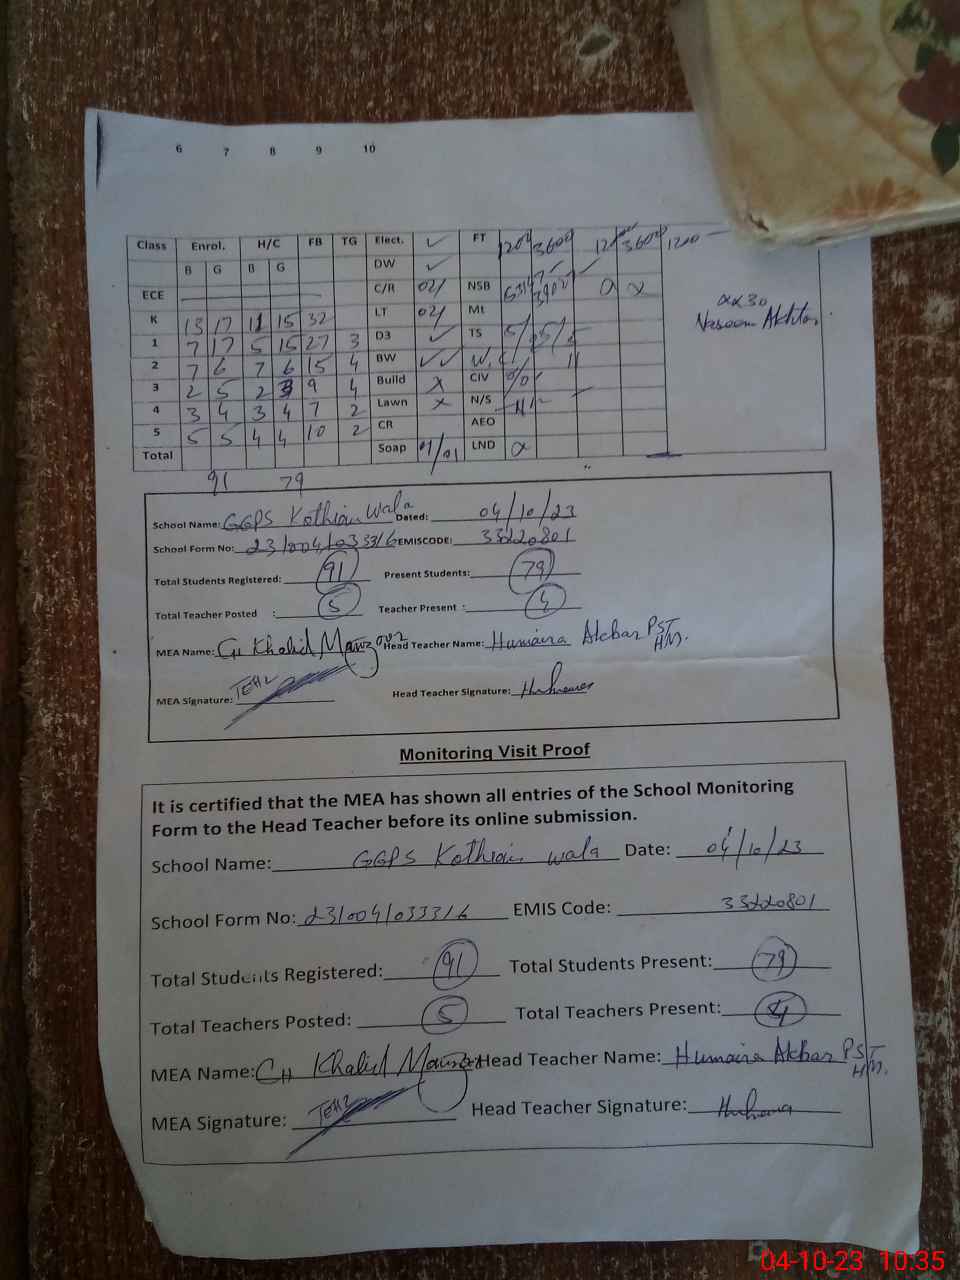 6 7 8 9 10
Class Enrol. H/C FB TG Elect. ✓ FT 1200 3600 1200 3600 1200
B G B G DW ✓
ECE C/R 02/ NSB
K 13 17 11 15 32 LT 02/ Mt
1 7 17 5 15 27 3 D3 ✓ TS
2 7 6 7 6 15 4 BW ✓✓
3 2 5 2 3 9 4 Build x CIV
4 3 4 3 4 7 2 Lawn x N/S
5 5 5 4 4 10 2 CR AEO
Total Soap 01/01 LND
91 79
Naseem Akhtar
School Name: GGPS Kothian wala Dated: 04/10/23
School Form No: 23/004/033316 EMISCODE: 33220801
Total Students Registered: 91 Present Students: 79
Total Teacher Posted : 5 Teacher Present : 4
MEA Name: CH Khalid Manzoor Head Teacher Name: Humaira Akbar PST
H/M.
MEA Signature: Head Teacher Signature:
Monitoring Visit Proof
It is certified that the MEA has shown all entries of the School Monitoring
Form to the Head Teacher before its online submission.
School Name: GGPS Kothian wala Date: 04/10/23
School Form No: 23/004/033316 EMIS Code: 33220801
Total Students Registered: 91 Total Students Present: 79
Total Teachers Posted: 5 Total Teachers Present: 4
MEA Name: CH Khalid Manzoor Head Teacher Name: Humaira Akbar PST
H/M.
MEA Signature: Head Teacher Signature:
04-10-23 10:35